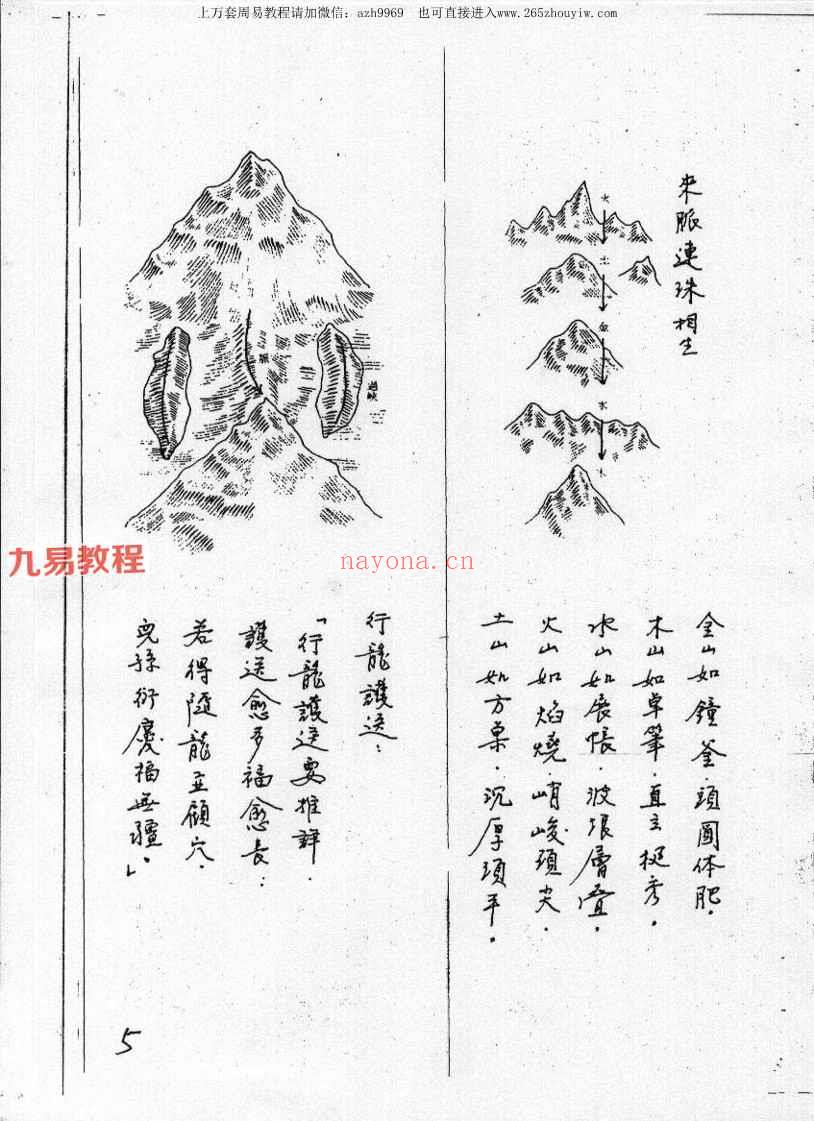 上万套周易教程请加微信：azh9969　也可直接进入www.265zhouyiw.com
來脈連珠相生
火
土
金
水
木
金山如鐘釜．頭圓体肥．
木山如卓筆．直立挺秀．
水山如展帳．波浪層叠．
火山如焰燒．峭峻頭尖．
土山如方桌．沉厚頂平．
過峽
行龍護送：
「行龍護送要推詳．
護送愈多福愈長：
若得隨龍並顧穴．
兒孫衍慶福無疆。」
九易教程
nayona.cn
5